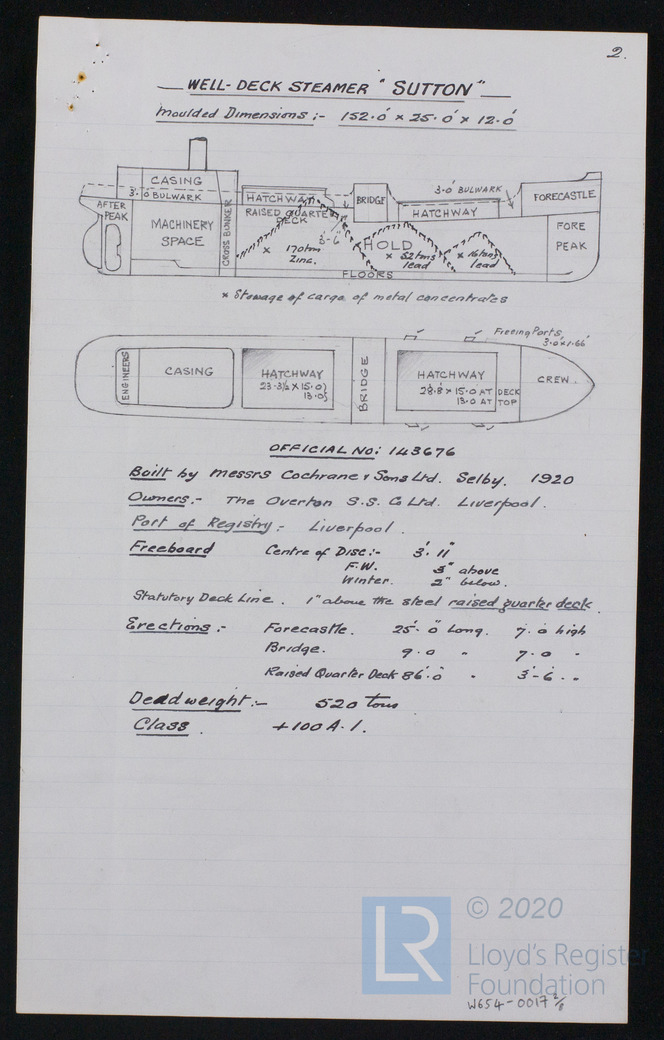 2.
WELL-DECK STEAMER "SUTTON"
Moulded Dimensions:- 152.0' x 25.0' x 12.0'
CASING
3'.0 BULWARK
AFTER PEAK
MACHINERY SPACE
CROSS BUNKER
HATCHWAY
RAISED QUARTER DECK
3'-6"
x 170 tons Zinc.
BRIDGE
HOLD
3.0' BULWARK
HATCHWAY
x 52 tons lead
x 16 tons lead
FORECASTLE
FORE PEAK
FLOORS
x Stowage of cargo of metal concentrates
Freeing Ports
3.0' x 1.66'
ENGINEERS
CASING
HATCHWAY
23-3½ x 15.0)
13.0)
BRIDGE
HATCHWAY
28.8 x 15.0 AT DECK
13.0 AT TOP
CREW
OFFICIAL NO: 143676
Built by Messrs Cochrane & Sons Ltd. Selby. 1920
Owners:- The Overton S.S. Co Ltd. Liverpool.
Port of Registry:- Liverpool.
Freeboard Centre of Disc:- 3'. 11"
F.W. 3" above
Winter. 2" below.
Statutory Deck Line. 1" above the steel raised quarter deck.
Erections:- Forecastle. 25'. 0" Long. 7.0 high
Bridge. 9.0 " 7.0 "
Raised Quarter Deck 86.0 " 3'-6 "
Deadweight:- 520 tons
Class. +100 A.1.
LR © 2020
Lloyd's Register
Foundation
W654-0017 2/8